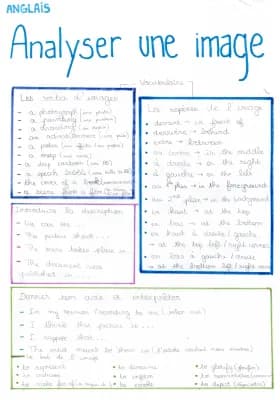 ANGLAIS
Analyser une image
Vocabulaire
Les sortes d'images
- a photograph (une photo)
- a painting (une peinture)
- a drawing (un dessin)
- an advertisement (une pub)
- a poster
- a map (une carte)
- a day cartoon
- a speech bubble
- the cover of a book
- a scene from a
La réponse de l'image
• devant → in front of
• derrière → behind
• entre → between
• au centre → in the middle
• à droite → on the right
• à gauche → on the left
• au 1er plan → in the foreground
• au 2nd plan → in the background
• en haut → at the top
• en bas → at the bottom
• en haut à droite / gauche
→ at the top left / right corner
• en bas à gauche / droite
→ at the bottom left / right
Introduire la description
- We can see...
- The picture shows...
- The scene takes place in
- The document was
published in...
Donner son avis et interpréter
- In my opinion / according to me
- I think this picture is...
- I suppose that...
- The artist wants to show us
le but de l'image
• to represent
• to denounce
• to glorify
• to criticise
• to inform
• to make fun of
• to evoke
• to depict